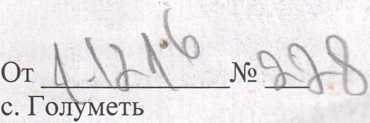 От 1.12.16 № 228
с. Голуметь